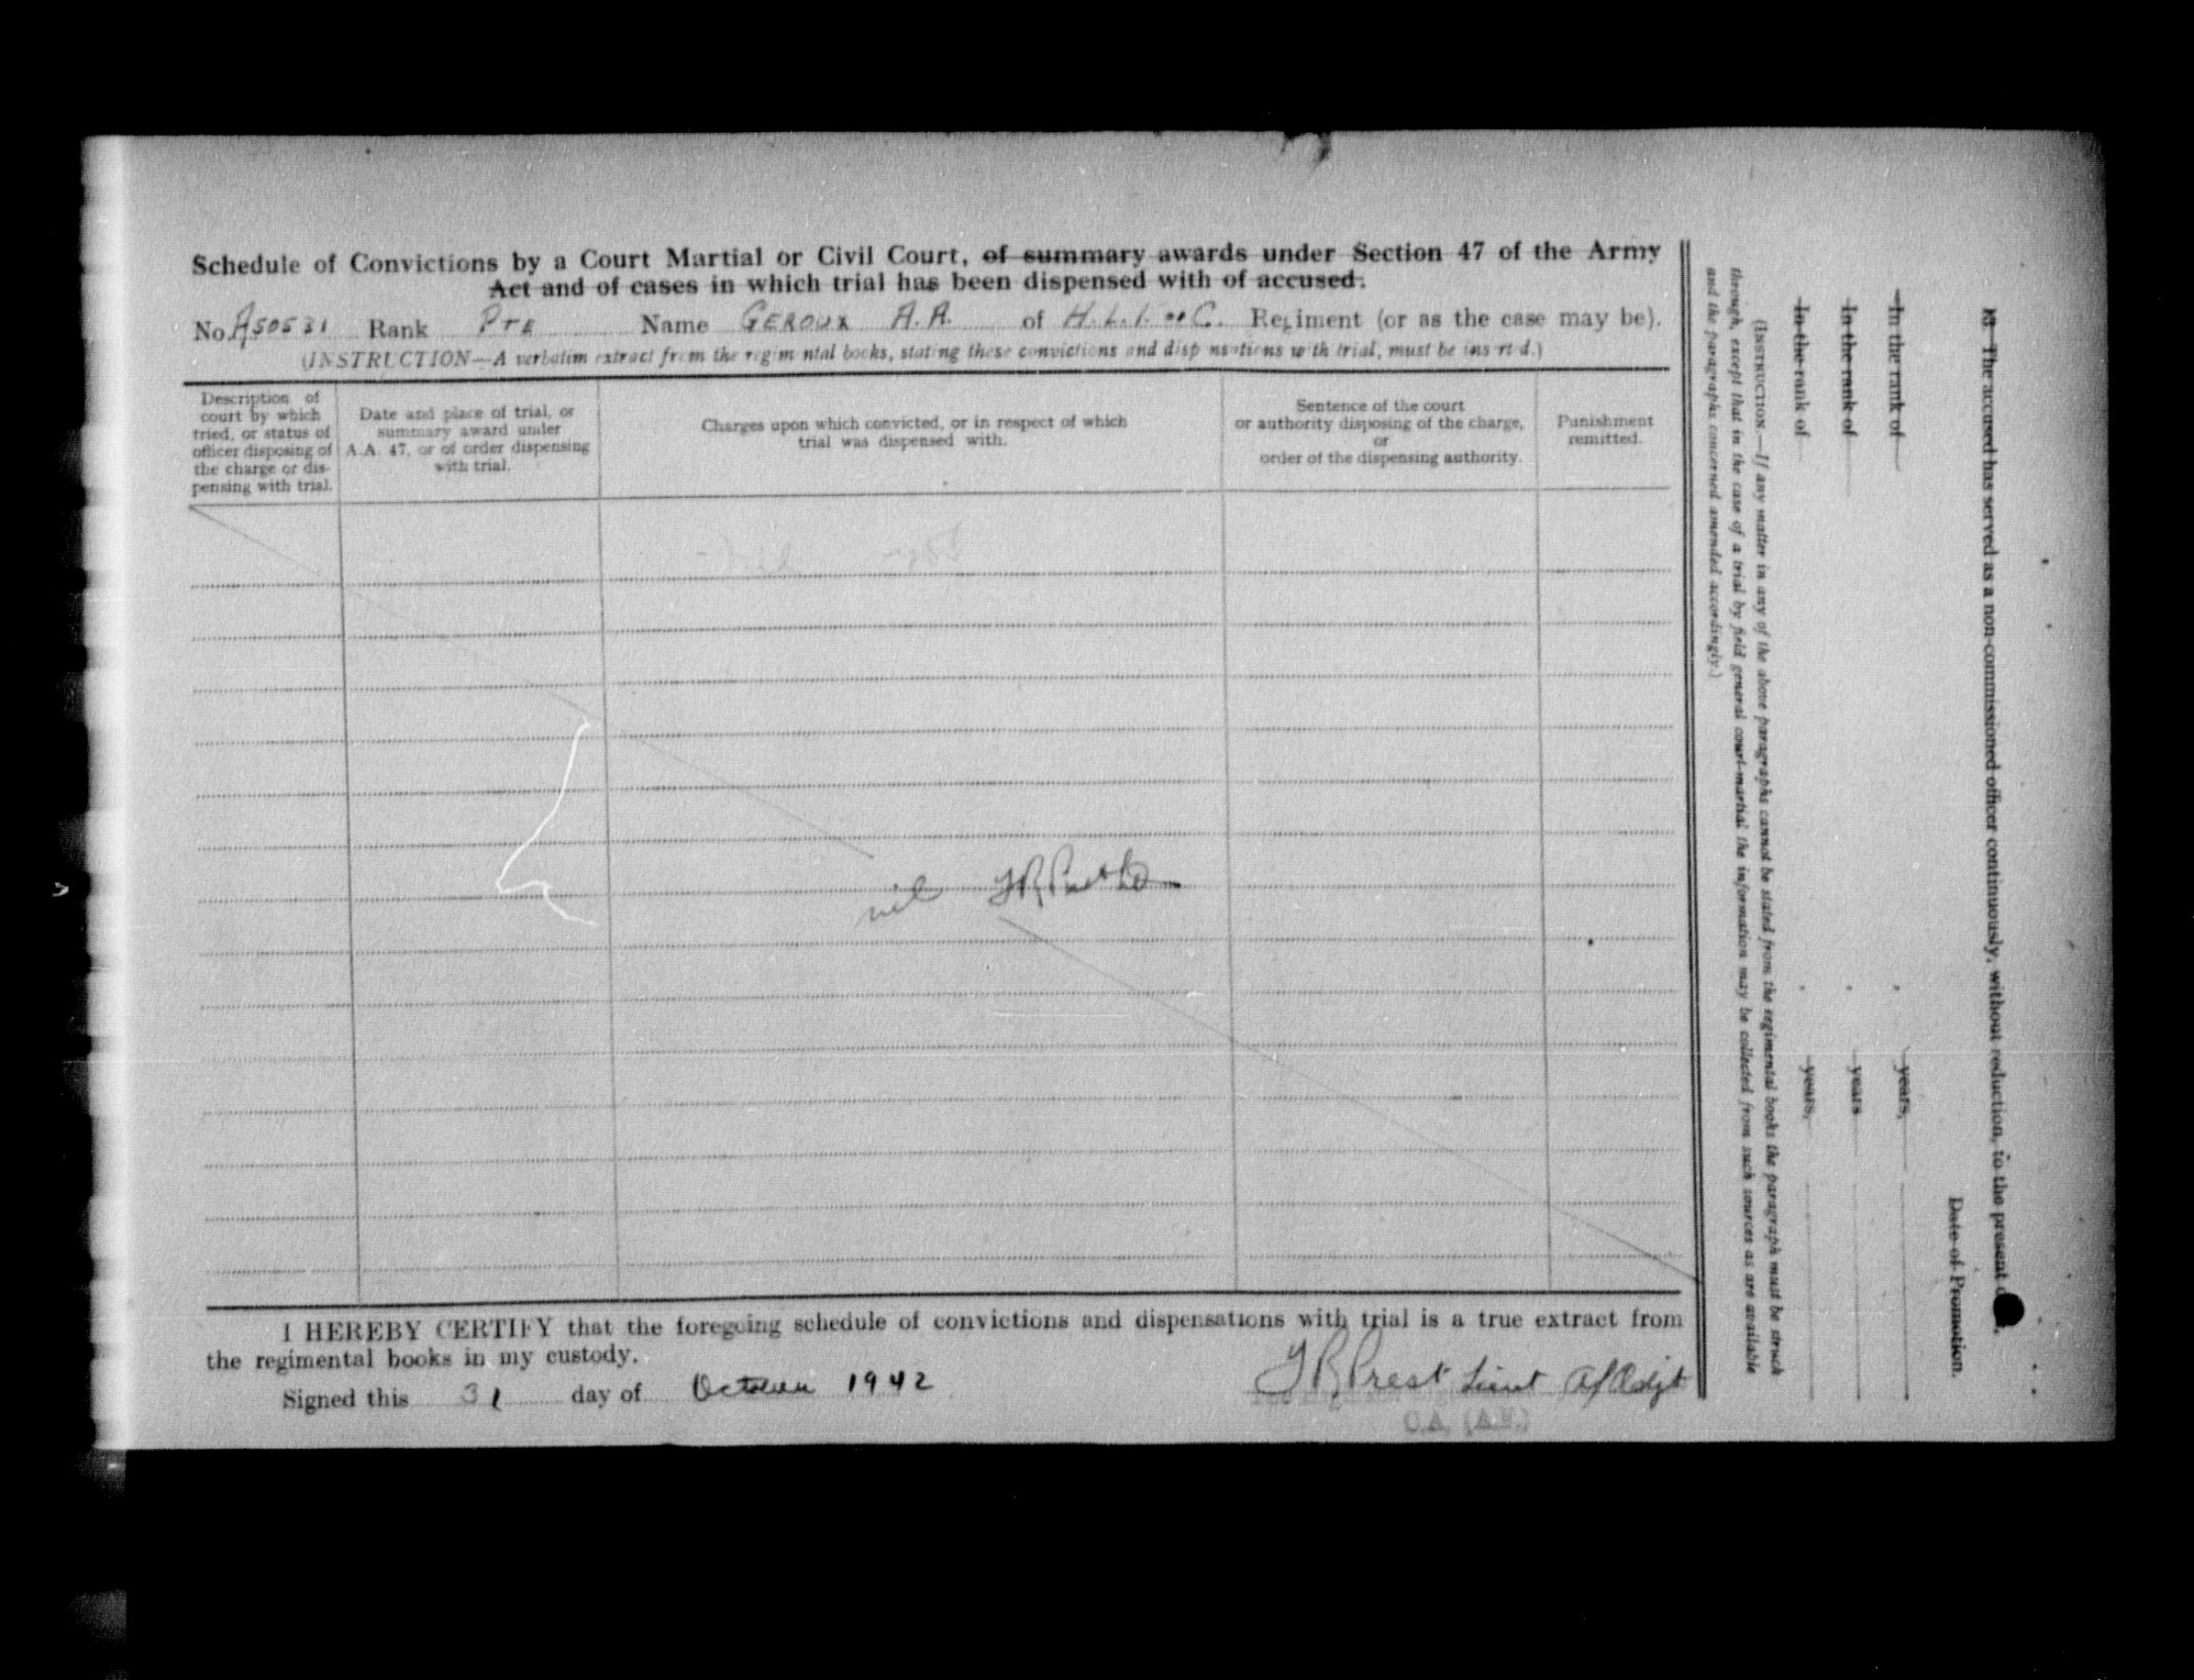 Schedule of Convictions by a Court Martial or Civil Court, of summary awards under Section 47 of the Army
Act and of cases in which trial has been dispensed with of accused.
No. A50531 Rank PTE Name GEROUX A.A. of H.L.I. of C. Regiment (or as the case may be).
(INSTRUCTION—A verbatim extract from the regim ntal books, stating these convictions and disp nsations with trial, must be ins rt d.)
Description of
court by which
tried, or status of
officer disposing of
the charge or dis-
pensing with trial.
Date and place of trial, or
summary award under
A.A. 47, or of order dispensing
with trial.
Charges upon which convicted, or in respect of which
trial was dispensed with.
Sentence of the court
or authority disposing of the charge,
or
order of the dispensing authority.
Punishment
remitted.
nil
I HEREBY CERTIFY that the foregoing schedule of convictions and dispensations with trial is a true extract from
the regimental books in my custody.
Signed this 31 day of October 1942
Prest Lieut a/Adjt
The accused has served as a non-commissioned officer continuously, without reduction, to the present
Date of Promotion.
In the rank of years,
In the rank of years
In the rank of years,
(INSTRUCTION.—If any matter in any of the above paragraphs cannot be stated from the regimental books the paragraph must be struck
through, except that in the case of a trial by field general court-martial the information may be collected from such sources as are available
and the paragraphs concerned amended accordingly.)